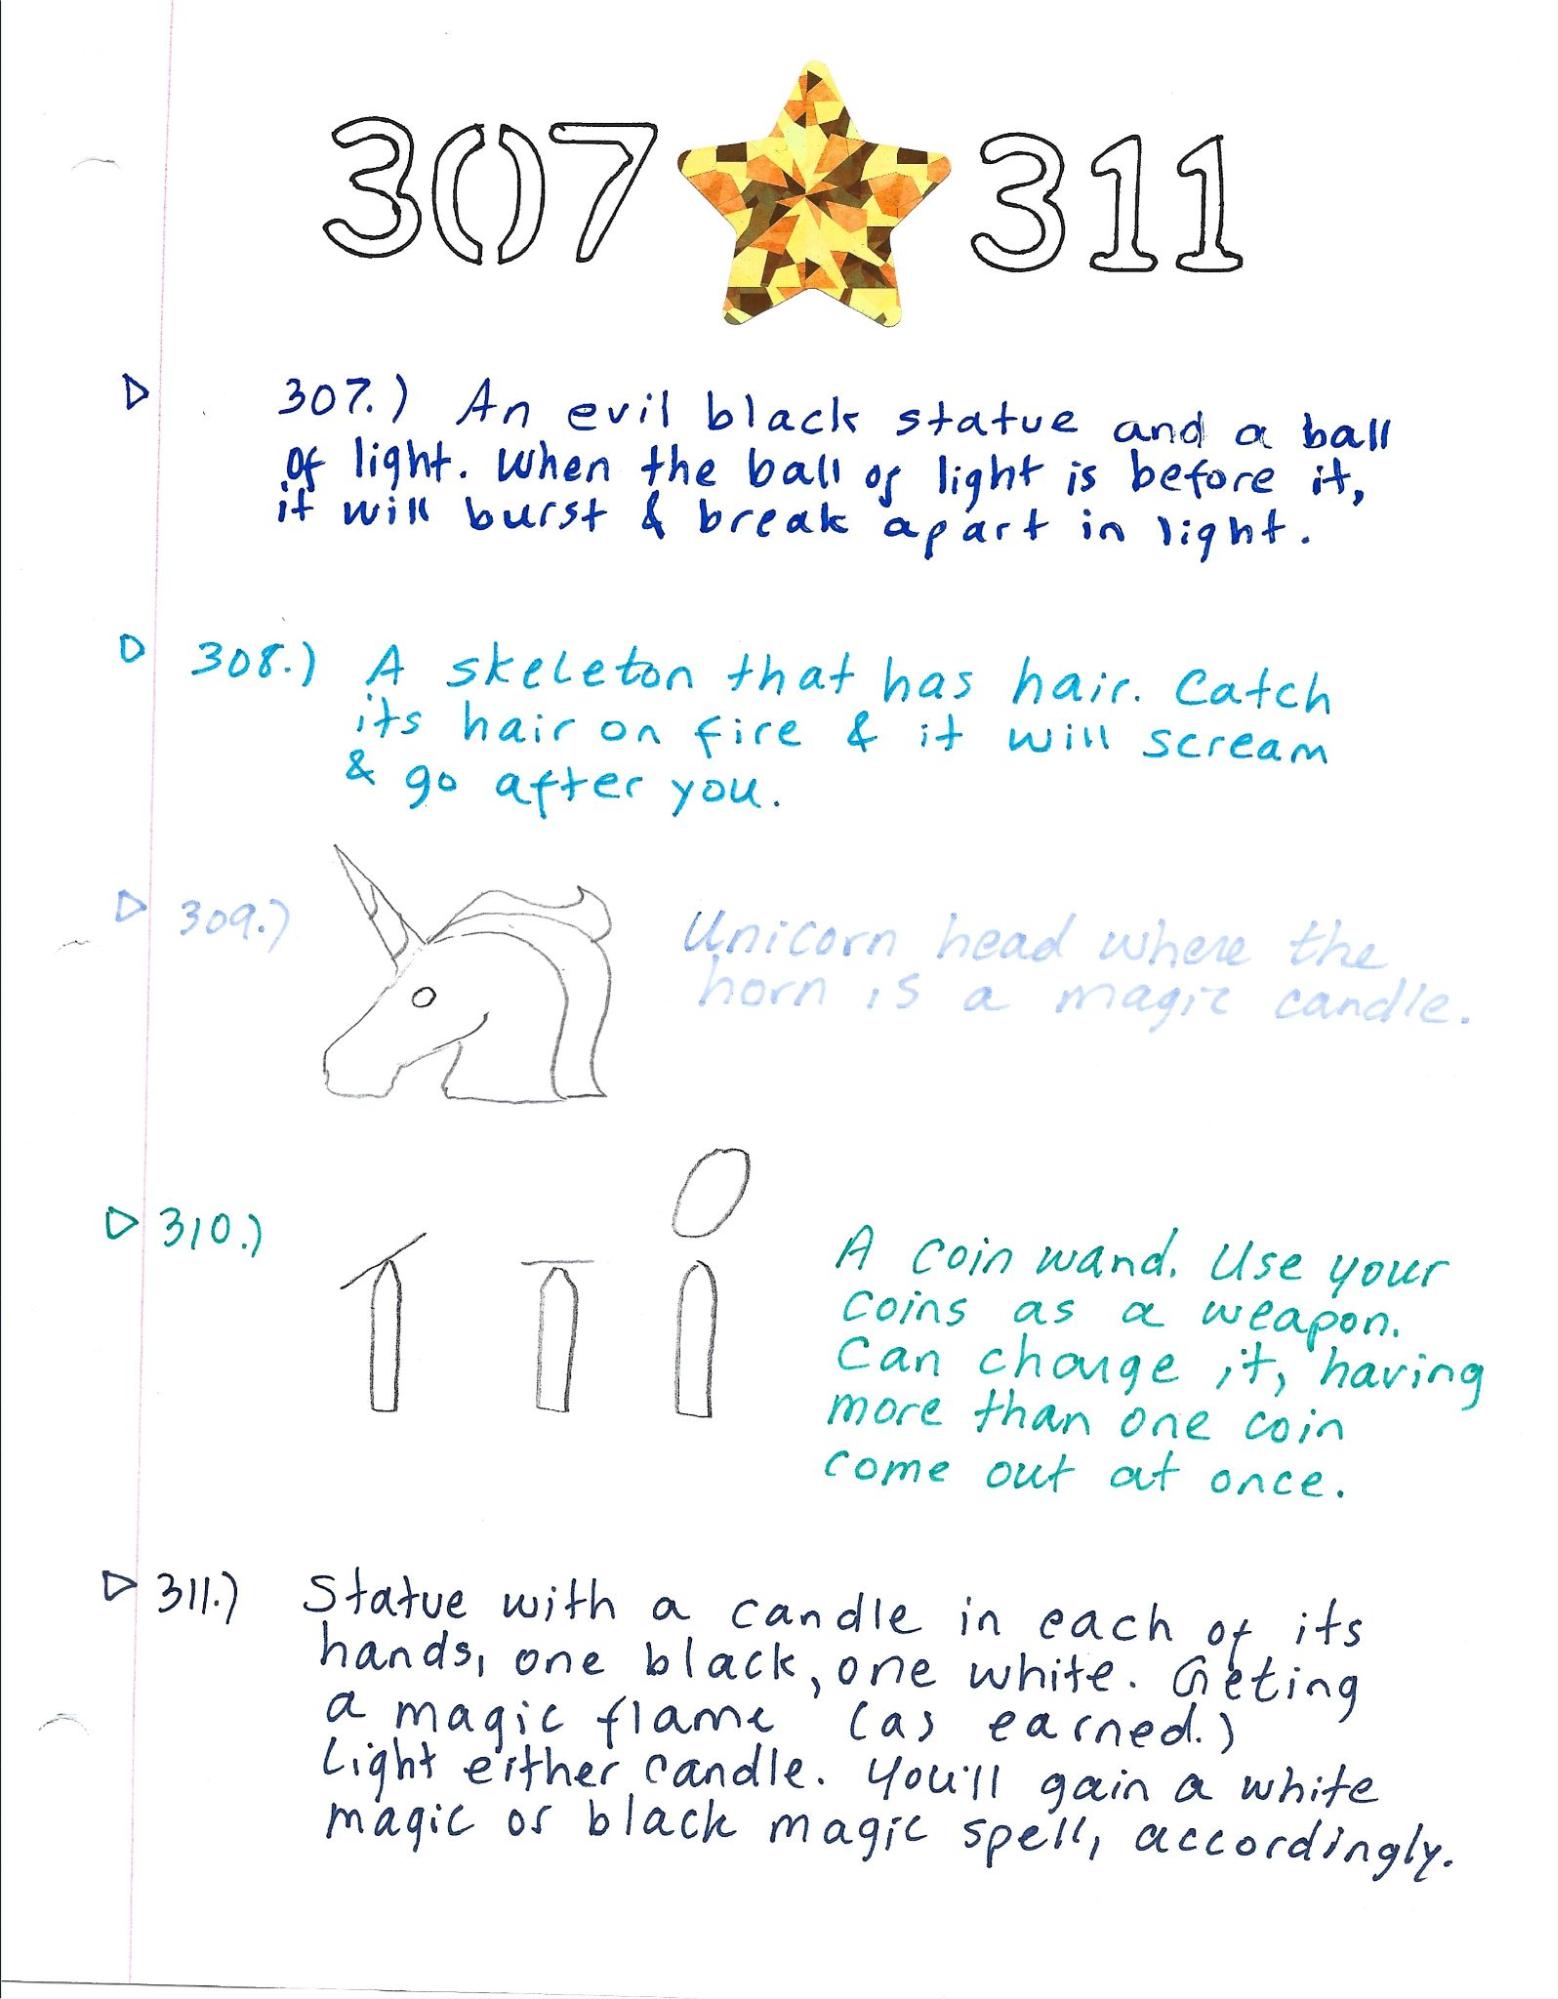 307 311
307.) An evil black statue and a ball
of light. When the ball of light is before it,
it will burst & break apart in light.
308.) A skeleton that has hair. Catch
its hair on fire & it will scream
& go after you.
309.) Unicorn head where the
horn is a magic candle.
310.) A coin wand. Use your
coins as a weapon.
Can change it, having
more than one coin
come out at once.
311.) Statue with a candle in each of its
hands, one black, one white. Geting
a magic flame (as earned.)
Light either candle. You'll gain a white
magic or black magic spell, accordingly.